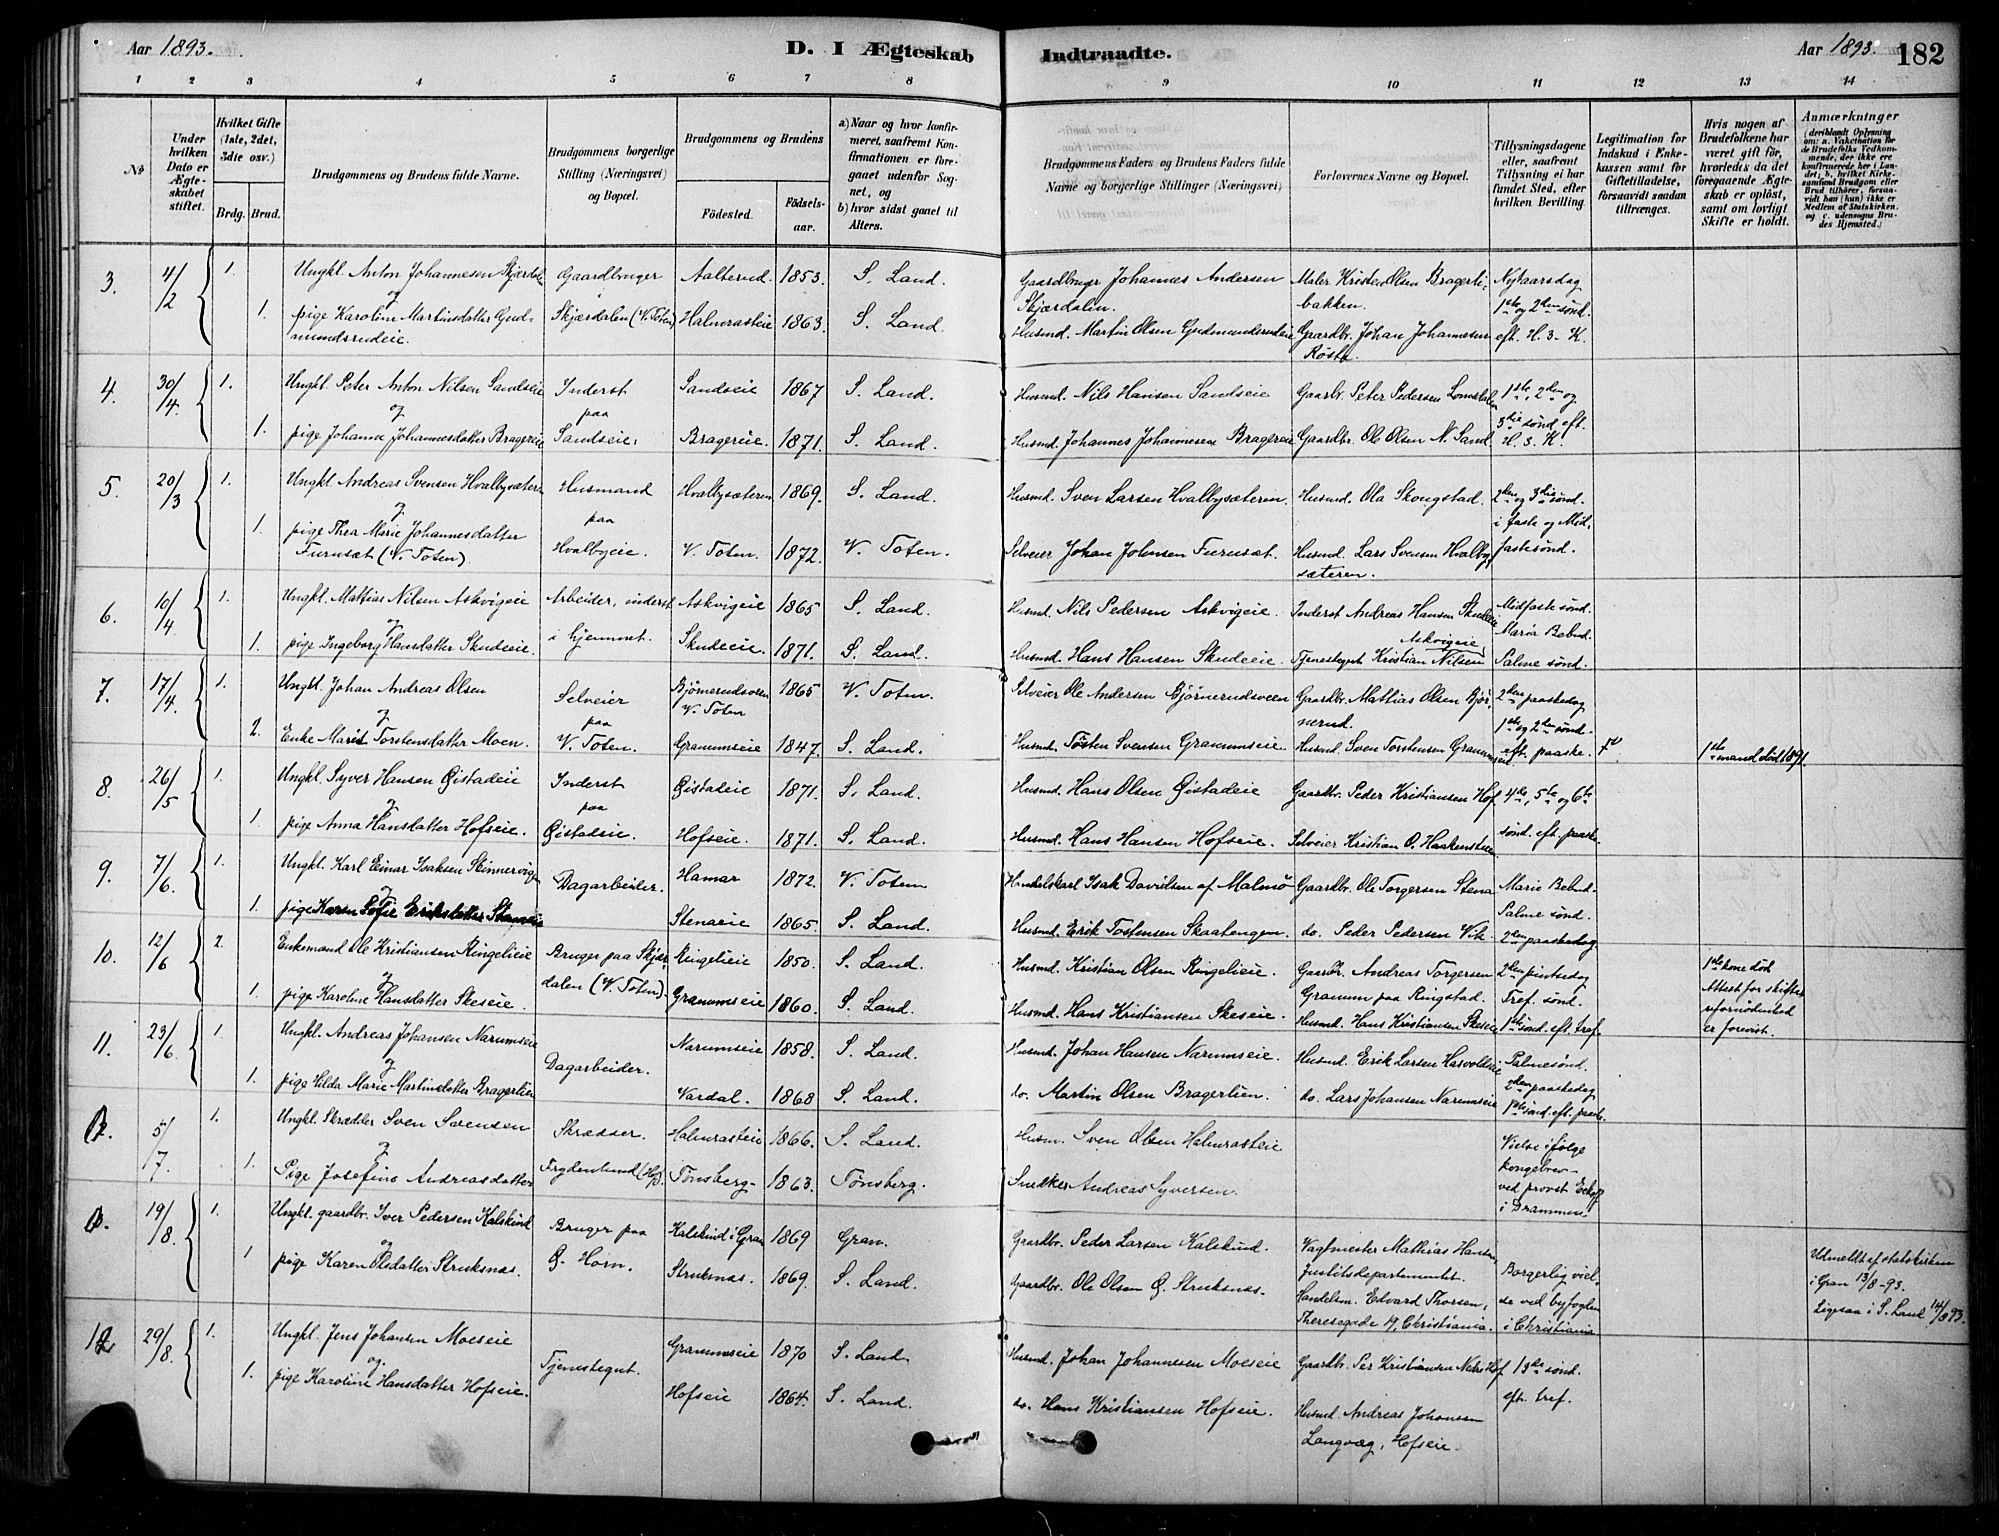 Aar 1893.
D. I Ægteskab Indtraadte.
Aar 1893.
182
1 2 3 4 5 6 7 8 9 10 11 12 13 14
No
Under hvilken Dato er Ægteskabet stiftet.
Hvilket Gifte (1ste, 2det, 3die osv.)
Brdg. Brud.
Brudgommens og Brudens fulde Navne.
Brudgommens borgerlige Stilling (Næringsvei) og Bopæl.
Brudgommens og Brudens
Fødested.
Fødselsaar.
a) Naar og hvor konfirmeret, saafremt Konfirmationen er foregaaet udenfor Sognet, og
b) hvor sidst gaaet til Alters.
Brudgommens Faders og Brudens Faders fulde Navne og borgerlige Stillinger (Næringsvei)
Forlovernes Navne og Bopæl.
Tillysningsdagene eller, saafremt Tillysning ei har fundet Sted, efter hvilken Bevilling.
Legitimation for Indskud i Enkekassen samt for Giftetilladelse, forsaavidt saadan tiltrænges.
Hvis nogen af Brudefolkene har været gift før, hvorledes da det foregaaende Ægteskab er opløst, samt om lovligt Skifte er holdt.
Anmærkninger
(deriblandt Oplysning om: a. Vakcination for de Brudefolks Vedkommende, der ikke ere konfirmerede her i Landet; b. hvilket Kirkesamfund Brudgom eller Brud tilhører, forsaavidt han (hun) ikke er Medlem af Statskirken, og c. udensogns Brudes Hjemsted.)
3. 4/2 1. Ungkl. Anton Johannesen Skjærdalen Gaardbruger Aalterud. 1853. S. Land. Gaardbruger Johannes Andersen Skjærdalen. Maler Kristen Olsen Bragerlibakken. Nytaarsdag
og
1. pige Karoline Martinsdatter Gudmundsrudeie. Skjærdalen (V. Toten) Halmrasteie 1863. S. Land. Husmd. Martin Olsen Gudmundsrudeie Gaardbr. Johan Johannesen Røste. 1ste og 2den sønd. eft. H. 3. K.
4. 30/4. 1. Ungkl. Peter Anton Nilsen Sandseie Inderst Sandseie 1867 S. Land. Husmd. Nils Hansen Sandseie Gaarbr. Peter Pedersen Lomsdalen 1ste, 2den og
og paa
1. pige Johanne Johannesdatter Bragereie Sandseie. Bragereie. 1871. S. Land. Husmd. Johannes Johannesen Bragereie Gaardbr. Ole Olsen N. Sand. 3die sønd. eft. H. 3. K.
5. 20/3 1. Ungkl. Andreas Svensen Hvalbysæteren Husmand Hvalbysæteren 1869. S. Land. Husmd. Sven Larsen Hvalbysæteren. Husmd. Ola Skongstad. 2den og 3die sønd.
og paa
1. pige Thea Marie Johannesdatter Furusæt (V. Toten). Hvalbyeie. V. Toten. 1872. V. Toten. Selveier Johan Johnsen Furusæt. Husmd. Lars Svensen Hvalbysæteren. i faste og Midfastesønd.
6. 10/4 1. Ungkl. Mattias Nilsen Askvigeie Arbeider, inderst Askvigeie 1865 S. Land. Husmd. Nils Pedersen Askvigeie. Inderst Andreas Hansen Skudeie Midfaste sønd.
og i hjemmet. Maria Bebud.
1. pige Ingeborg Hansdatter Skudeie. Skudeie. 1871. S. Land. Husmd. Hans Hansen Skudeie. Tjenestegut Kristian Nilsen Askvigeie Palme sønd.
7. 17/4 1. Ungkl. Johan Andreas Olsen Selveier Bjørnerudsveen V. Toten 1865 V. Toten. Selveier Ole Andersen Bjørnerudsveen Gaardbr. Mattias Olsen Bjørnerud. 2den paaskedag
og paa 1ste og 2den sønd.
2. Enke Marit Torstensdatter Moen. V. Toten. Grammseie 1847. S. Land. Husmd. Tosten Svensen Grammseie. Husmd. Sven Torstensen Grammseie eft. paaske. 1ste mand død 1891.
8. 26/5 1. Ungkl. Syver Hansen Gistadeie Inderst Gistadeie 1871. S. Land. Husmd. Hans Olsen Gistadeie Gaardbr. Peder Kristiansen Hof 4de, 5te og 6te
og paa
1. pige Anna Hansdatter Hofseie. Gistadeie. Hofseie. 1871. S. Land. Husmd. Hans Hansen Hofseie. Selveier Kristian O. Haakensteen. sønd. eft. paaske.
9. 7/6. 1. Ungkl. Karl Einar Isaksen Skinnervigen Dagarbeider. Hamar 1872. V. Toten Handelskarl Isak Davidsen af Malmø Gaardbr. Ole Torgersen Stena Marie Bebud.
og Palme sønd.
1. pige Karen Sofie Eriksdatter Stenaeie Stenaeie 1865. S. Land. Husmd. Erik Tostensen Skaatengen. do. Peder Pedersen Vik. 2den paaskedag
10. 12/6 2. Enkemand Ole Kristiansen Ringelieie Bruger paa Skjærdalen (V. Toten). Ringelieie 1850. S. Land. Husmd. Kristian Olsen Ringelieie. Gaardbr. Andreas Torgersen Gramm paa Ringstad. 2den pintsedag 1ste kone død Attest for skifte ufornødenhed er forevist.
og Tref. sønd.
1. pige Karoline Hansdatter Skeseie. Grammseie 1860. S. Land. Husmd. Hans Kristiansen Skeseie. Husmd. Hans Kristiansen Skeseie 1ste sønd. eft. tref.
11. 23/6 1. Ungkl. Andreas Johansen Narumseie Dagarbeider. Narumseie 1858. S. Land. Husmd. Johan Hansen Narumseie. Husmd. Erik Larsen Hasvoldseie Palmesønd.
og 2den paaskedag
1. pige Hilda Marie Martinsdatter Bragerlien Vardal. 1868 S. Land. do. Martin Olsen Bragerlien. do. Lars Johansen Narumseie 1ste sønd. eft. paaske
5/7 1. Ungkl. Skrædder Sven Svensen Skrædder. Halmrasteie 1866. S. Land. Husm. Sven Olsen Halmrasteie Vielse ifølge kongebrev
og
1. Pige Josefine Andreasdatter Frydenlund (Hof). Tønsberg. 1863. Tønsberg. Snedker Andreas Syversen. ved provst Eckhoff i Drammen.
19/8. 1. Ungkl. gaardbr. Iver Pedersen Kalskind Bruger paa Kalskind i Gran 1869 Gran. Gaardbr. Peder Larsen Kalskind. Vagtmester Mathias Hansen, Justitsdepartementet. Borgerlig vielse ved byfogden i Christiania Udmeldt af statskirken i Gran 13/8-93.
og
1 pige Karen Olsdatter Struksnæs. Ø. Horn. Struksnæs. 1869. S. Land. Gaardbr. Ole Olsen Ø. Struksnæs. Handelsm. Edvard Thorsen, Theresegade 19, Christiania. Ligesaa i S. Land 14/8 93.
12 29/8. 1. Ungkl. Jens Johansen Moeseie Tjenestegut. Grammseie 1870 S. Land. Husmd. Johan Johannesen Moeseie Gaardbr. Per Kristiansen Nedre Hof 13de sønd.
og
1. pige Karoline Hansdatter Hofseie. Hofseie 1864. S. Land. do. Hans Kristiansen Hofseie. Husmd. Andreas Johansen Langvæg, Hofseie. eft. tref.